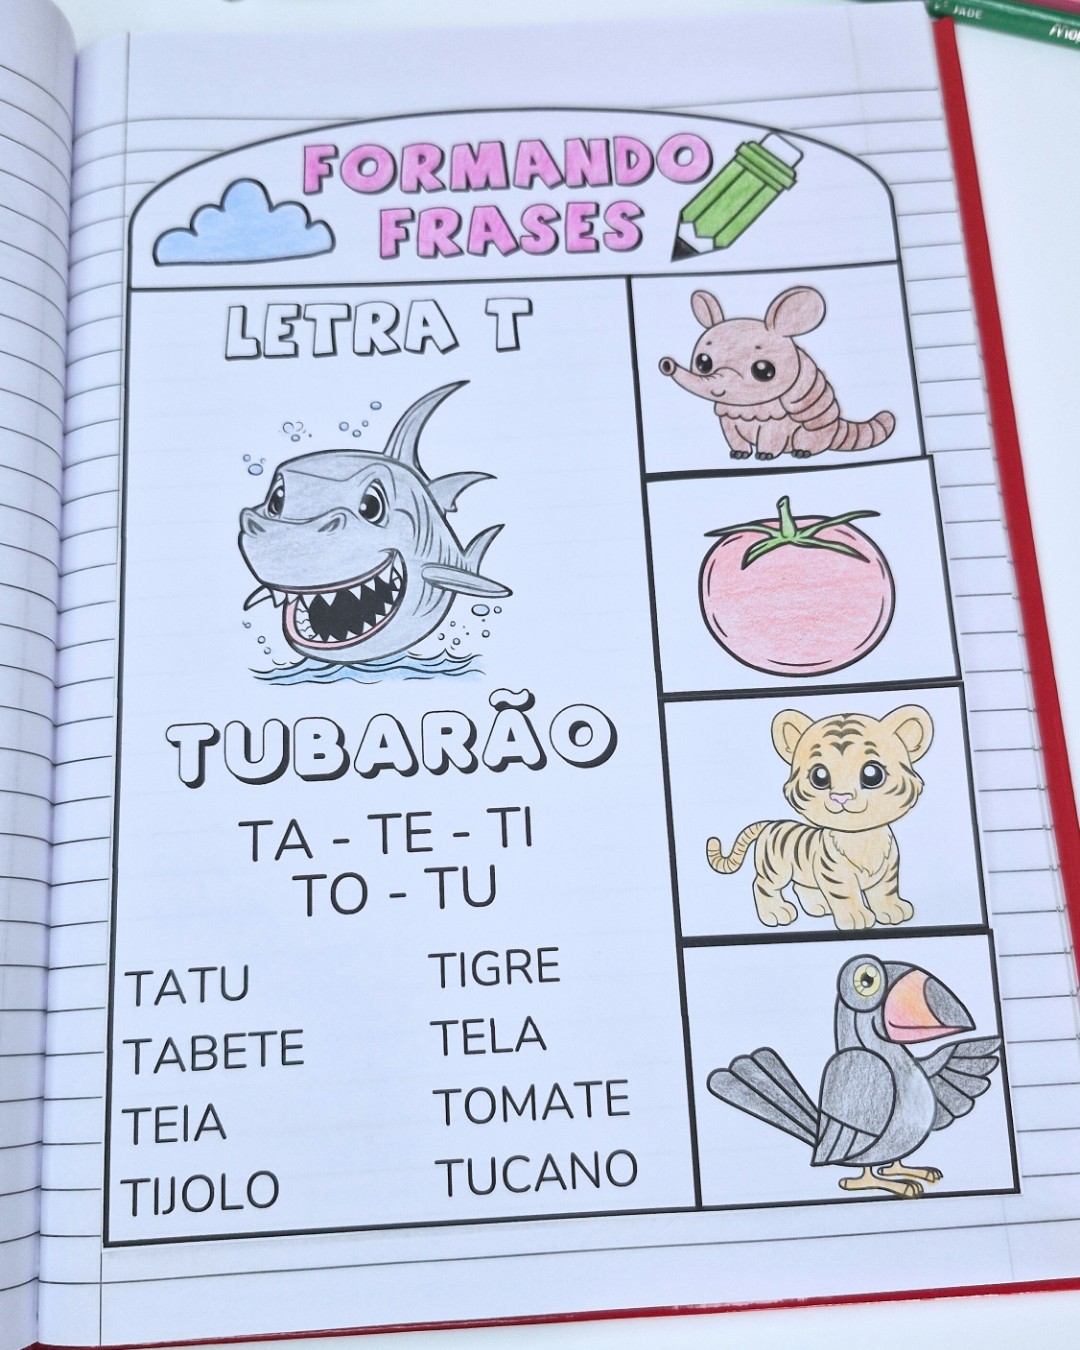 JADE
FORMANDO
FRASES
LETRA T
TUBARÃO
TA - TE - TI
TO - TU
TATU
TABETE
TEIA
TIJOLO
TIGRE
TELA
TOMATE
TUCANO